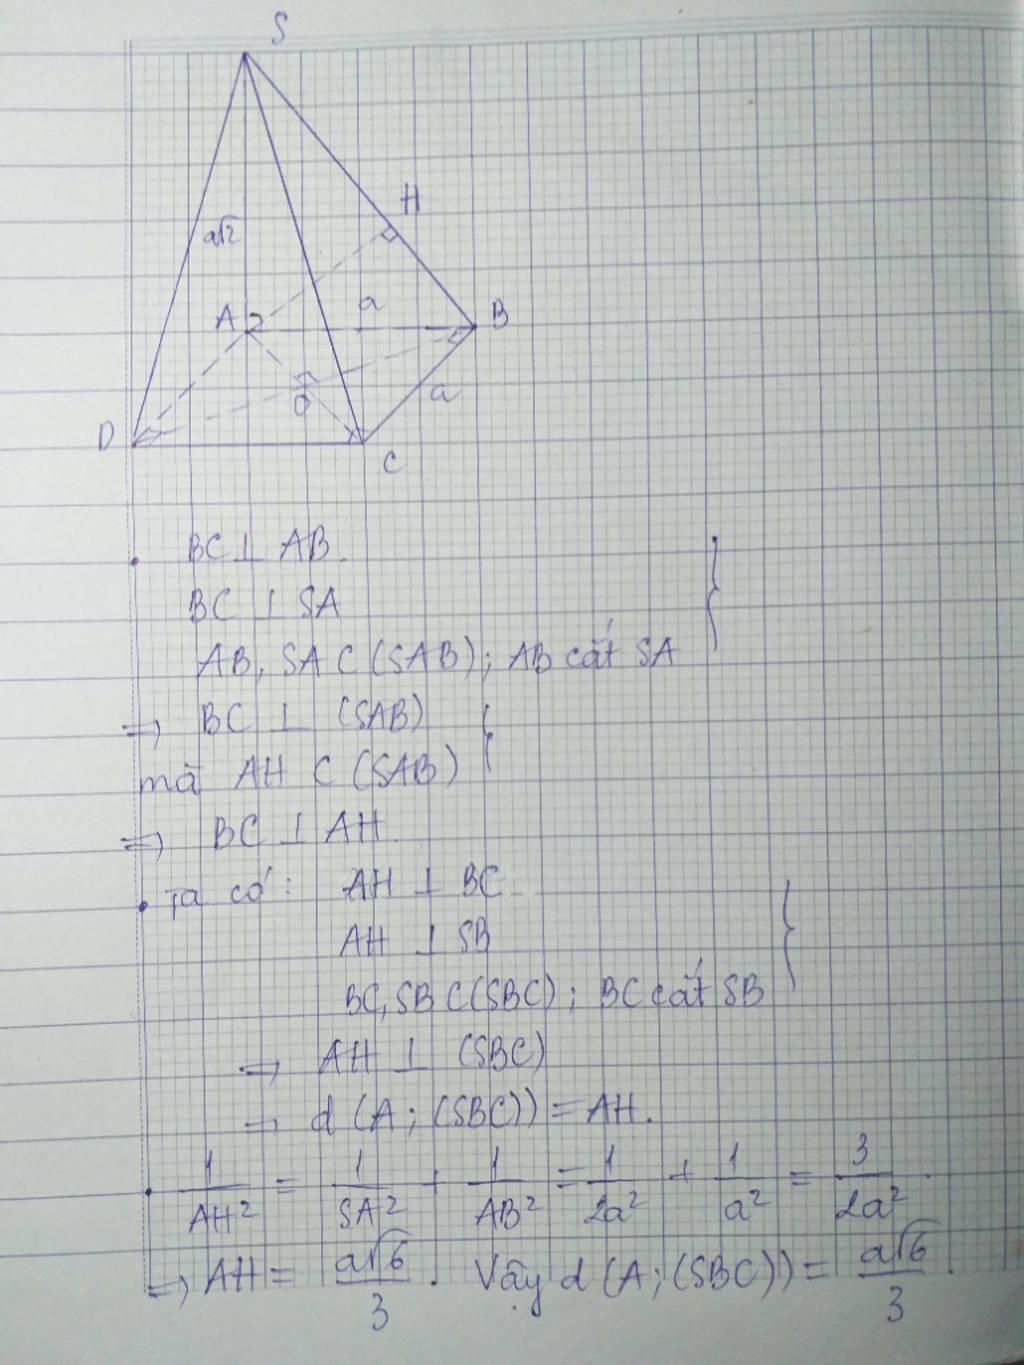 S
H
a√2
A
a
B
O
a
D
C
BC ⊥ AB.
BC ⊥ SA
AB, SA ⊂ (SAB); AB cắt SA
⇒ BC ⊥ (SAB)
mà AH ⊂ (SAB)
⇒ BC ⊥ AH.
• Ta có: AH ⊥ BC.
AH ⊥ SB
BC, SB ⊂ (SBC); BC cắt SB
⇒ AH ⊥ (SBC)
⇒ d(A; (SBC)) = AH.
• 1/AH² = 1/SA² + 1/AB² = 1/2a² + 1/a² = 3/2a².
⇒ AH = a√6/3. Vậy d(A; (SBC)) = a√6/3.